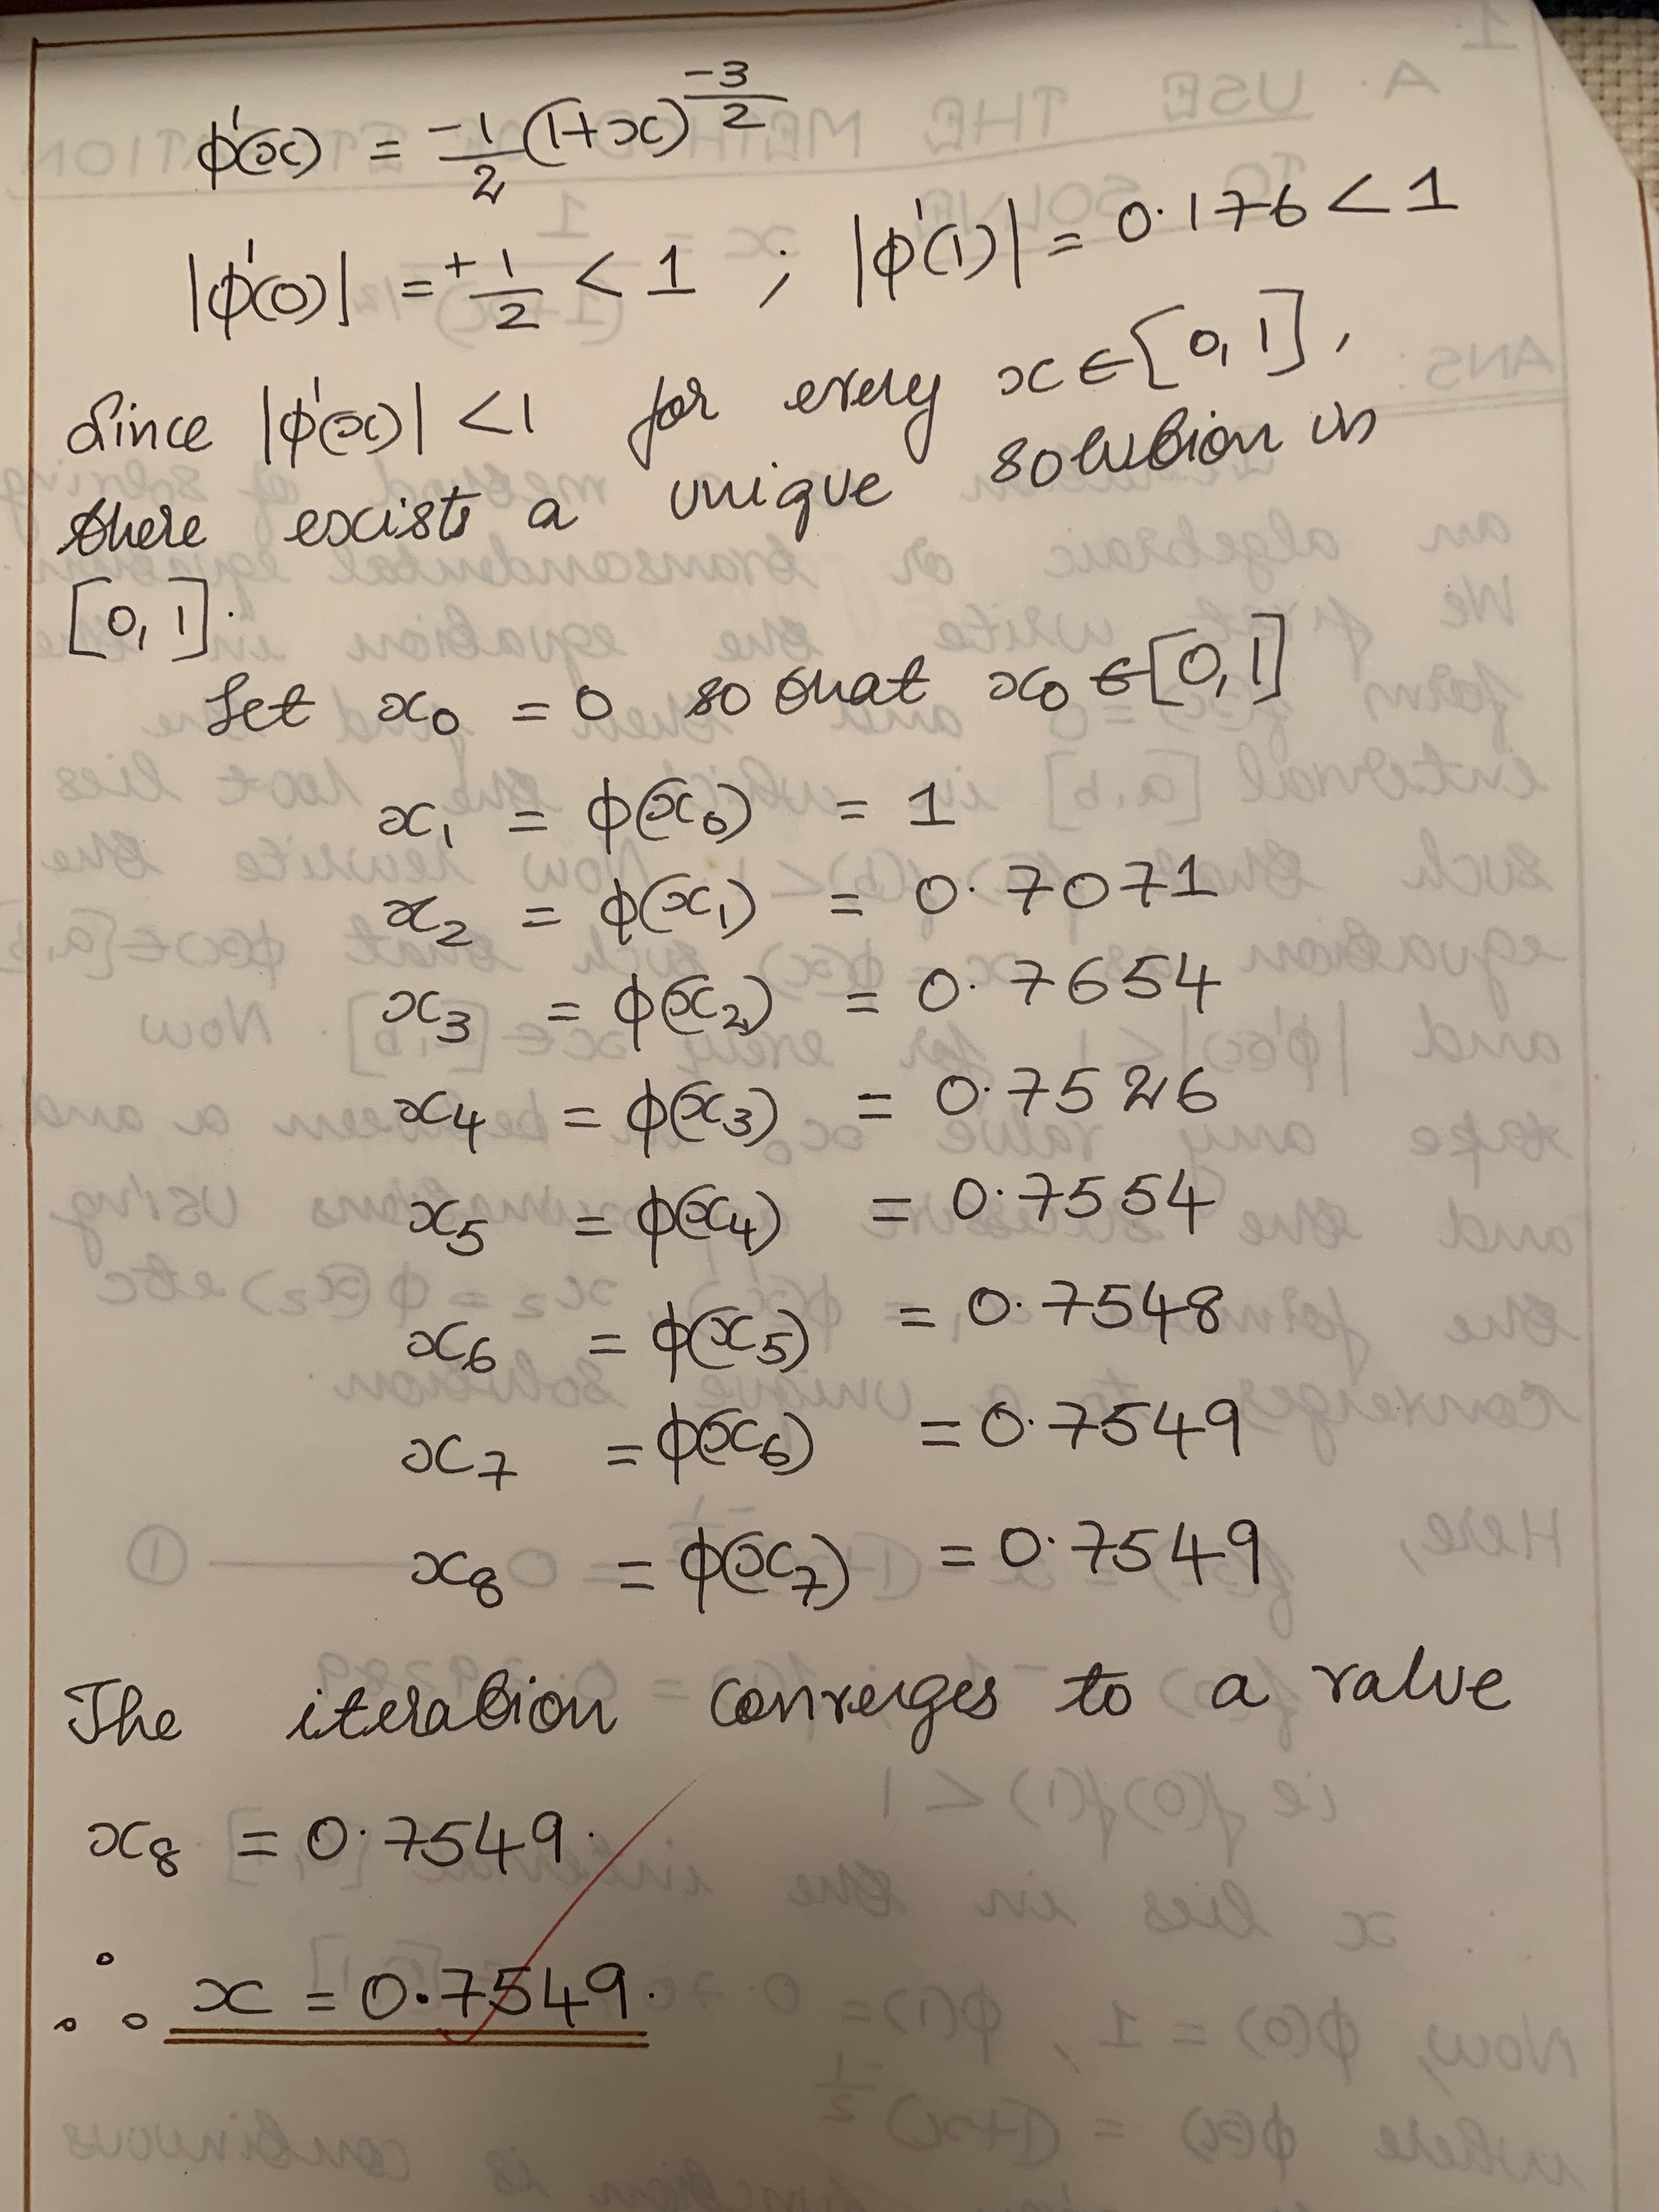 φ'(x) = -1/2 (1+x)^(-3/2)
|φ'(0)| = +1/2 < 1 ; |φ'(1)| = 0.176 < 1
Since |φ'(x)| < 1 for every x ∈ [0, 1],
there exists a unique solution in
[0, 1].
Let x₀ = 0 so that x₀ ∈ [0, 1]
x₁ = φ(x₀) = 1
x₂ = φ(x₁) = 0.7071
x₃ = φ(x₂) = 0.7654
x₄ = φ(x₃) = 0.7526
x₅ = φ(x₄) = 0.7554
x₆ = φ(x₅) = 0.7548
x₇ = φ(x₆) = 0.7549
x₈ = φ(x₇) = 0.7549
The iteration converges to a value
x₈ = 0.7549.
∴ x = 0.7549.